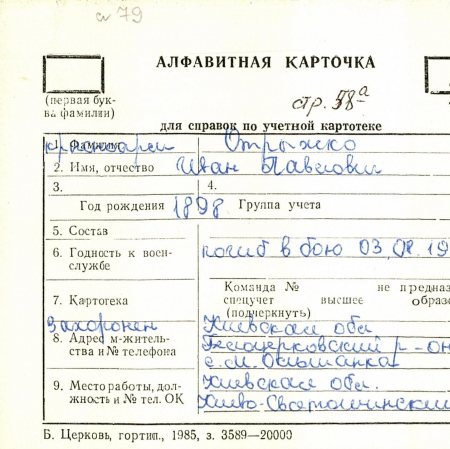 79
АЛФАВИТНАЯ КАРТОЧКА
(первая бук-
ва фамилии)
стр. 58а
для справок по учетной картотеке
1. Фамилия Отрыжко
2. Имя, отчество Иван Павлович
3. 4.
Год рождения 1898 Группа учета
5. Состав
6. Годность к воен-
службе
погиб в бою 03.08.19
Команда № не предназ
спецучет высшее образо
(подчеркнуть)
7. Картотека
захоронен Киевская обл
8. Адрес м-житель-
ства и № телефона
Белоцерковский р-он
с. М. Ольшанка
9. Место работы, дол-
жность и № тел. ОК
Киевская обл.
Киево-Святошинский
Б. Церковь, гортип., 1985, з. 3589—20000